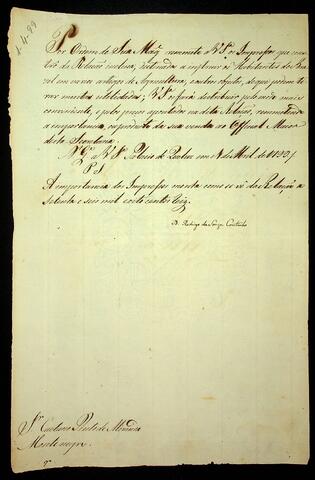 1-4-99
Por Ordem de Sua Mag. remetto a V. S.ª os Impressos que constão
da Relação inclusa, destinados a instruir os Habitantes do Brazil
em varios artigos de Agricultura, e outros objectos, de que podem tirar
conveniente, e pelo preço apontado na dita Relação, remettendo
a importancia, e producto da sua venda ao Official Maior
desta Secretaria.
D.s G.e a V. S. Palacio de Queluz em 1 de Abril de
P. S.
A importancia dos Impressos monta como se vê da Relação a
setenta e seis mil oito centos reis.
D. Rodrigo de Souza Coutinho
S.r Caetano Pinto de Miranda
Montenegro